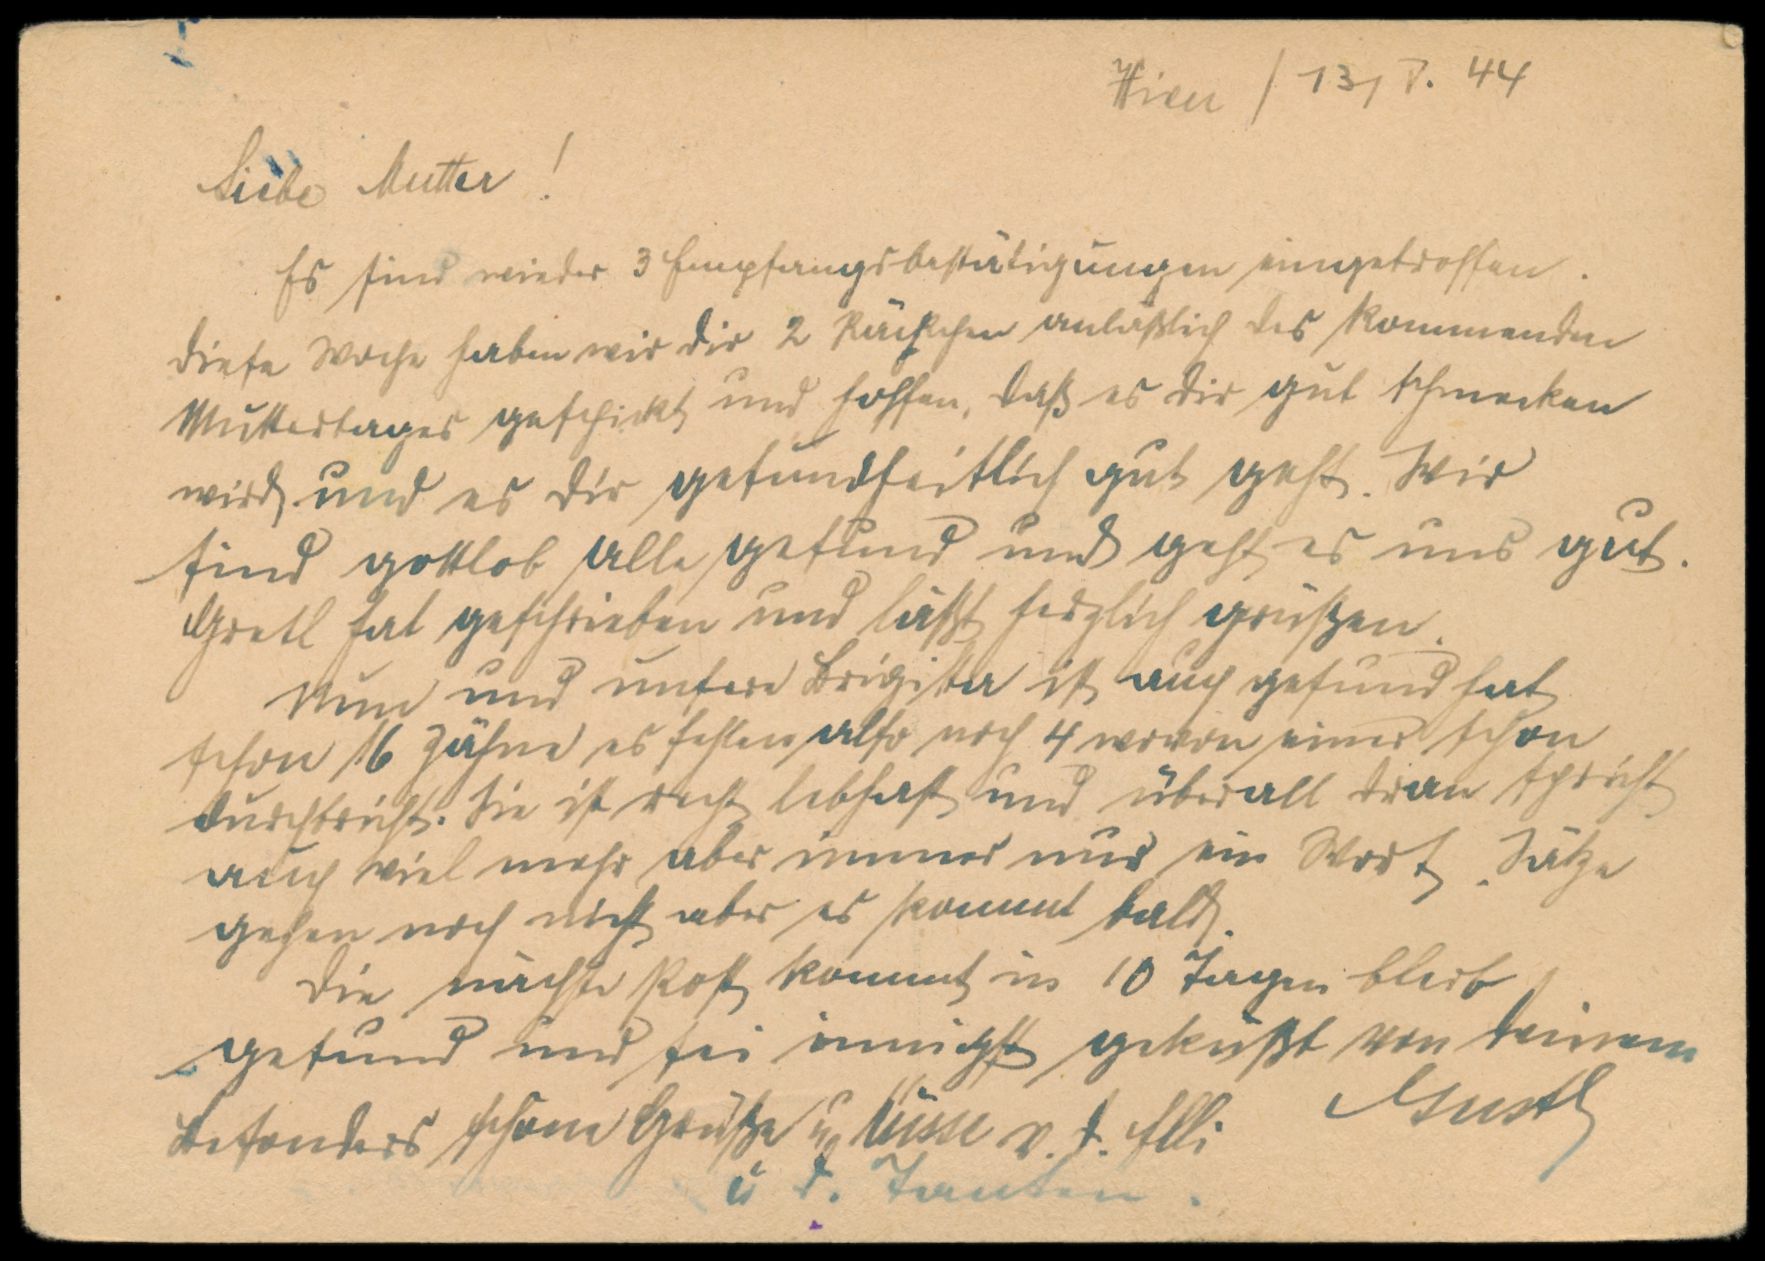 Wien / 13, V. 44
Liebe Mutter!
Es sind wieder 3 Empfangsbestätigungen eingetroffen.
Diese Woche haben wir Dir 2 Päckchen anläßlich des kommenden
Muttertages geschickt und hoffen, daß es Dir gut schmecken
wird und es Dir gesundheitlich gut geht. Wir
sind gottlob alle gesund und geht es uns gut.
Gretl hat geschrieben und läßt herzlich grüßen.
Nun und unsere Brigitta ist auch gesund hat
schon 16 Zähne es fehlen also noch 4 wovon einer schon
durchbricht. Sie ist recht lebhaft und überall dran spricht
auch viel mehr aber immer nur ein Wort. Sätze
gehen noch nicht aber es kommt bald.
Die nächste Post kommt in 10 Tagen bleib
gesund und sei innigst geküßt von Deinem
Gustl
Besonders schöne Grüße u. Küsse v. d. Elli
u d. Tanten.